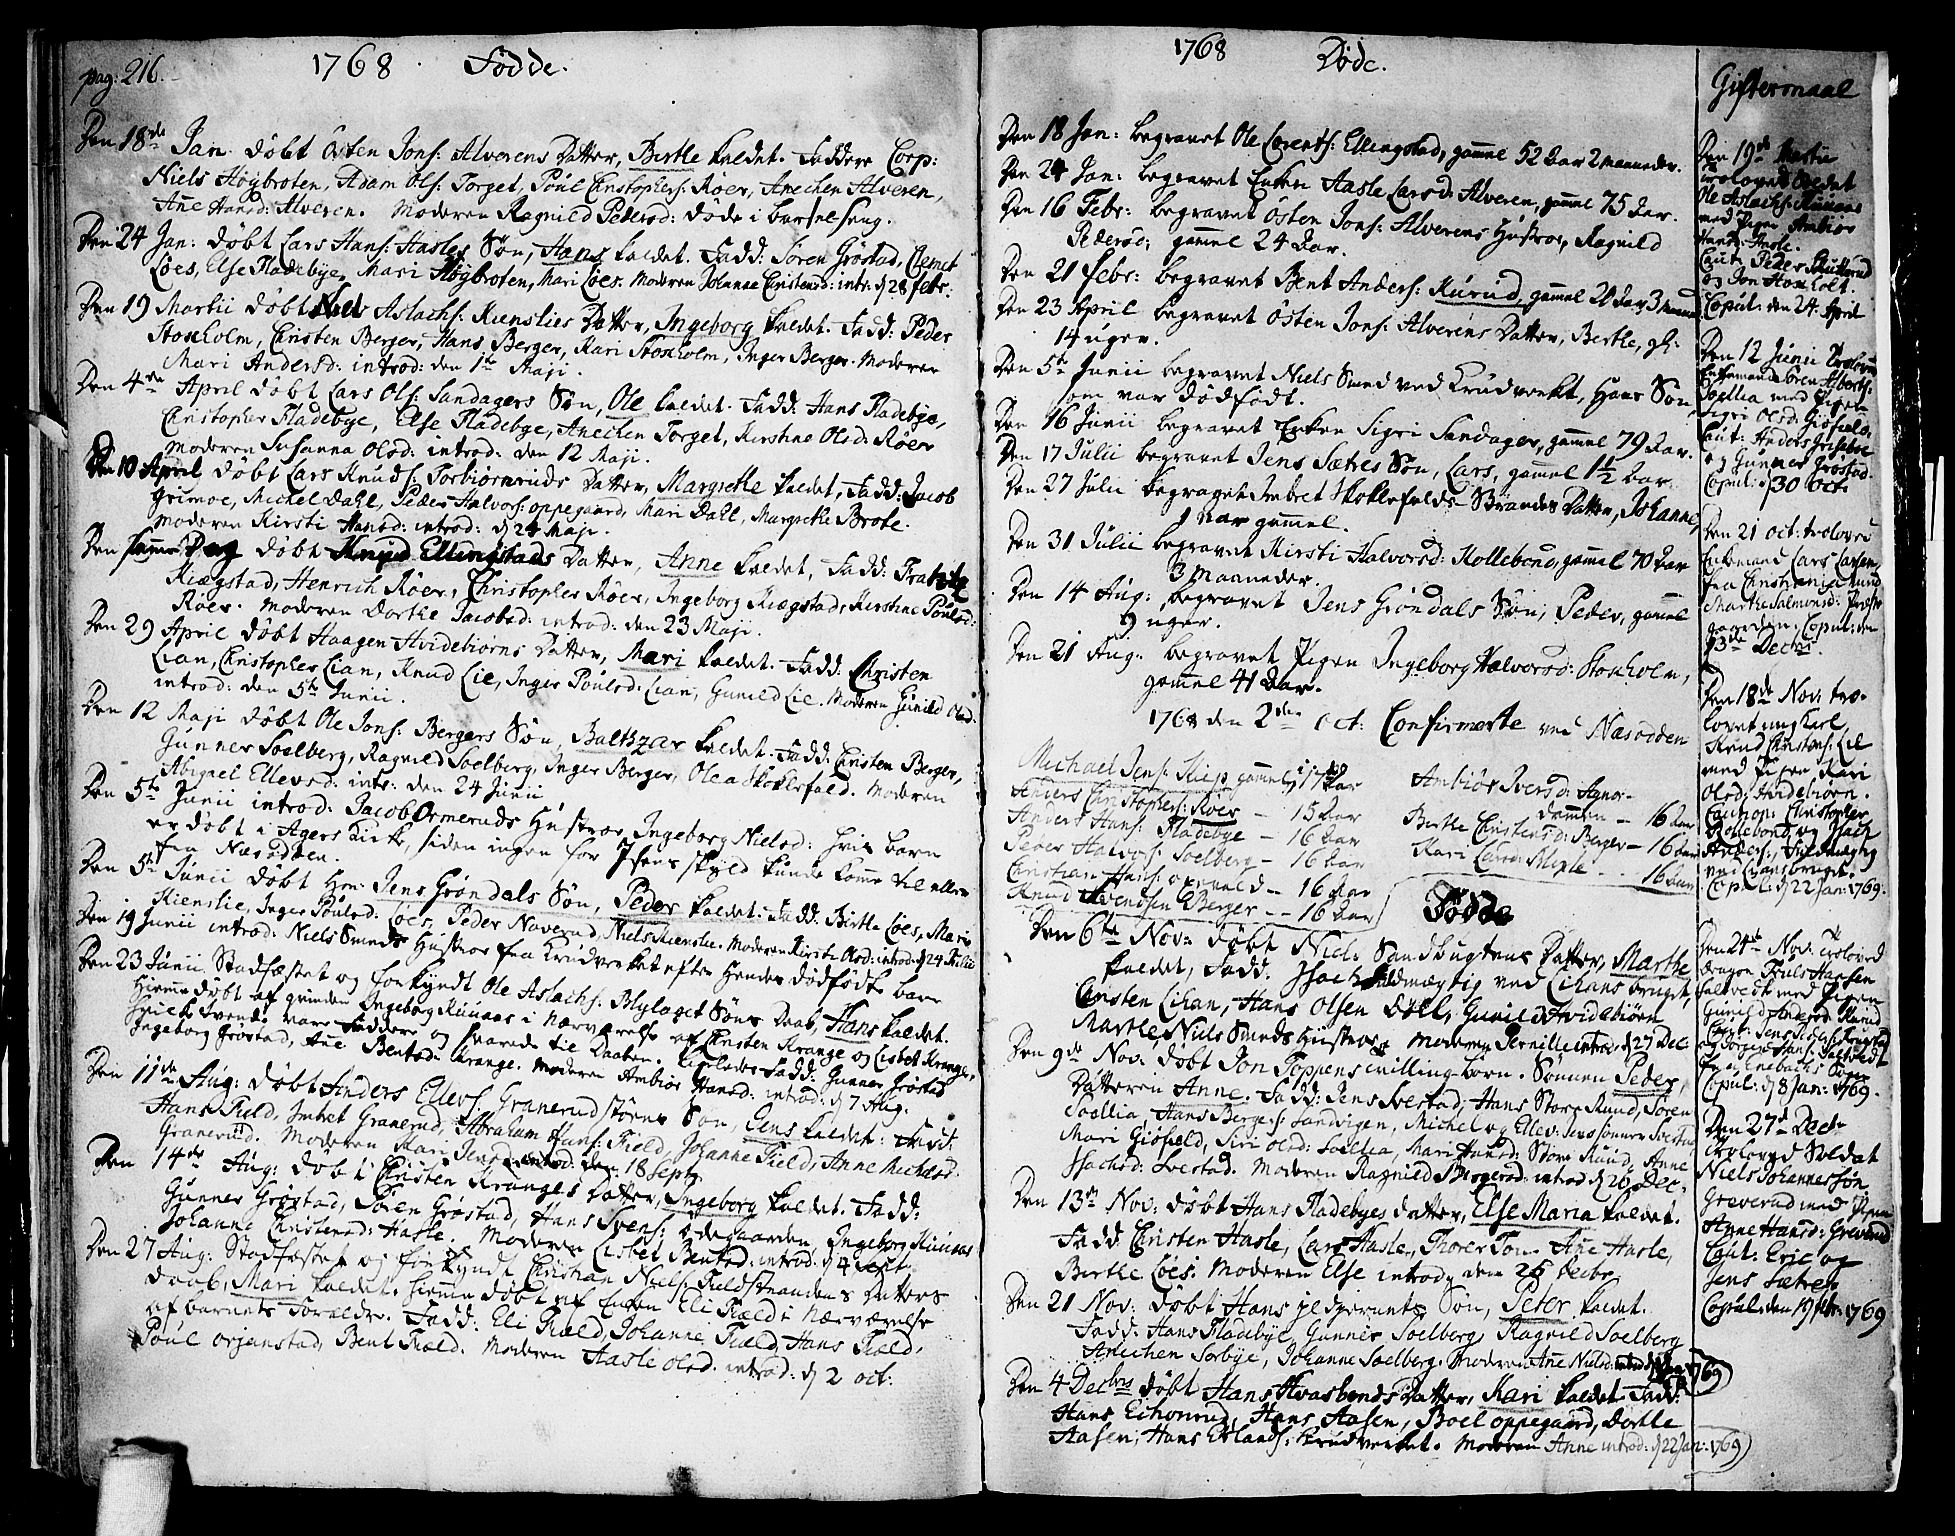 pag: 216.
1768. Fødde.
Den 18de Jan. døbt Østen Jons: Alverens Datter, Birthe kaldet. Faddere Corp:
Niels Høgbroten, Adam Ols: Torget, Poul Christophers: Røer, Anechen Alveren,
Ane Hansd: Alveren. Moderen Ragnild Pedersd: døde i barselseng.
Den 24 Jan: døbt Lars Hans: Hasles Søn, Hans kaldet. Fadd: Søren Grøstad, Clemet
Loes, Else Fladebye, Mari Høgbroten, Mari Loes. Moderen Johanne Christensd: intr: d 28 febr:
Den 19 Martii døbt Aslachs: Kienslies Datter, Ingeborg kaldet. Fadd: Peder
Stoxholm, Christen Berger, Hans Berger, Kari Stoxholm, Inger Berger. Moderen
Mari Andersd: introd: den 1te Maji.
Den 4de April døbt Lars Ols: Sandagers Søn, Ole kaldet. Fadd: Hans Fladebye,
Christopher Fladebye, Else Fladebye, Anechen Torget, Kirstine Olsd: Røer
Moderen Susanna Olsd: introd: den 12 Maji.
Den 10 April døbt Lars Knuds: Torbiørnruds Datter, Margrethe kaldet, Fadd: Jacob
Grimoe, Michel Dahl, Peder Halvors: oppegaard, Mari Dahl, Margrethe Brote.
Moderen Kirsti Hansd: introd: d 24 Maji.
Den samme Dag døbt Knud Ellingstads Datter, Anne kaldet, Fadd:
Kiægstad, Henrich Røer, Christopher Røer, Ingeborg Kiægstad, Kirstine Poulsd:
Røer. Moderen Dorthe Jacobsd: introd: den 23 Maji.
Den 29 April døbt Haagen Hvidebiørns Datter, Mari kaldet. Fadd: Christen
Lian, Christopher Lian, Knud Lie, Inger Poulsd: Lian, Gunild Lie. Moderen Gunild Olsd:
introd: den 5te Junii.
Den 12 Maji døbt Ole Jons: Bergers Søn, Baltzar kaldet. Fadd: Christen Berger,
Gunner Soelberg, Ragnild Soelberg, Inger Berger, Olea Skoklefald. Moderen
Abigael Ellevsd: intr: den 24 Junii
Den 5te Junii introd: Jacob Ormeruds Hustroe, Ingeborg Nielsd: hvis barn
er døbt i Agers Kirke, siden ingen for Jisens skyld kunde komme til eller
fra Næsodden.
Den 5te Junii døbt Hr: Jens Grøndals Søn, Peder kaldet. Fadd: Birthe Loes, Mari
Kienslie, Inger Poulsd: Loes, Peder Naverud, Niels Kienslie. Moderen Kirsti Olsd: introd: d 24 Julii
Den 19 Junii introd: Niels Smeds Hustroe fra Krudverket efter hendes dødfødte barn
Den 23 Junii Stadfæstet og forkyndt Ole Aslachs: Blylaget Søns Daab, Hans kaldet.
Hiemmedøbt af qvinden Ingeborg Kiinaas i nærværelse af Christen Krange og Lisbet Krange,
hvilke Tvende vare Faddere og svarede til Daaben. Fadd: Gunner Grøstad
Ingeborg Grøstad, Ane Bentsd: Krange. Moderen Ambiør Hansd: introd: d 7 Aug.
Den 11de Aug: døbt Anders Ellevs: Granerudstørns Søn, Jens kaldet: Fadd:
Hans Field, Imbret Granerud, Abraham Hans: Field, Johanne Field, Anne Michelsd:
Granerud. Moderen Mari Jensd: introd: den 18 Sept:
Den 14de Aug: døbt Christen Kranges Datter, Ingeborg kaldet. Fadd:
Gunner Grøstad, Søren Grøstad, Hans Svens: Ødegaarden, Ingeborg Kiinaas
Johanne Christensd: Hasle. Moderen Lisbet Bentsd: introd: d 4 Sept.
Den 27 Aug: Stadfæstet og forkyndt Christian Niels: Fieldstrandens Datters
daab, Mari kaldet. hiemmedøbt af Enken Eli Field i nærværelse
af barnets Foreldre. Fadd: Eli Field, Johanne Field, Hans Field,
Poul orjenstad, Bent Field. Moderen Aasle Olsd: introd: d 2 oct:
1768 Døde.
Den 18 Jan: begravet Ole Lorents: Ellingstad, gammel 52 Aar 2 maaneder.
Den 24 Jan: begravet Enken Aasle Larsd: Alveren, gammel 75 Aar.
Den 16 Febr: begravet Østen Jons: Alverens Hustroe, Ragnild
Pedersd: gammel 24 Aar.
Den 21 Febr: begravet Bent Anders: Kurud, gammel 20 Aar 3 maaned
Den 23 April begravet Østen Jons: Alverens Datter, Birthe, gl:
14 uger.
Den 5te Junii begravet Niels Smed ved Krudverket, Hans Søn
som var dødfødt.
Den 16 Junii begravet Enken Sigri Sandager, gammel 79 Aar.
Den 17 Julii begravet Jens Sætres Søn, Lars, gammel 1½ Aar.
Den 27 Julii begravet Imbret Skoklefalds-Strandes Datter, Johanne,
1 Aar gammel.
Den 31 Julii begravet Kirsti Halvorsd: Kollebond, gammel 70 Aar
3 maaneder.
Den 14 Aug: begravet Jens Grøndals Søn, Peder, gammel
9 uger.
Den 21 Aug: begravet Pigen Ingeborg Halvorsd: Stoxholm,
gammel 41 Aar.
1768 den 2den Oct: Confirmerte ved Næsodden
Michael Jens: Skiep gammel 17 Aar
Anders Christophers: Røer – 15 Aar
Anders Hans: Fladebye – 16 Aar
Peder Halvors: Soelberg – 16 Aar
Christian Hans: oxevald – 16 Aar
Knud Svendsen Berger – 16 Aar
Ambiør Iversd: Agnor-
dammen – 16 Aar
Birthe Christensd: Berger – 16 Aar
Kari – 16 Aar
Fødde
Den 6te Nov: døbt Niels Sandbugtens Datter, Marthe
kaldet, Fadd. Isach fuldmægtig ved Lihans bruget,
Christen Lihan, Hans Olsen Døll, Gunild Hvidebiørn
Marthe Niels Smeds Hustroe. Moderen Pernille introd: d 27 Dec:
Den 9de Nov: døbt Jon Toppens tvillingbørn. Sønnen Peder,
Datteren Anne. Fadd: Jens Svestad, Hans Store Ruud, Søren
Soellia, Hans Bergers: Sandvigen, Michel og Ellev Jenssønner Svestad
Mari Giøfield, Siri Olsd: Soellia, Mari Hansd: Store Ruud, Anne
Isachsd: Svestad. Moderen Ragnild Borgersd: introd d 26 Dec.
Den 13de Nov: døbt Hans Fladebyes datter, Else Maria kaldet.
Fadd Christen Hasle, Lars Hasle, Thorer Ton. Ane Hasle,
Birthe Loes. Moderen Else introd: den 26 Decbr
Den 21 Nov: døbt Hans jedgerunts Søn, Peter kaldet.
Fadd: Hans Fladebye, Gunner Soelberg, Ragnild Soelberg
Anechen Sorbye, Johanne Soelberg. Moderen Ane Nielsd: introd 1769
Den 4 Decbris døbt Hans Hvasbonds Datter, Kari kaldet. Fadd:
Hans Echornrud, Hans Aasen, Boel oppegaard, Dorthe
Aasen, Hans Erlands: Krudverket. Moderen Anne introd: d 22 Jan: 1769
Giftermaal
Den 19de Martii
trolovet
Ole Aslachs: Kiinaas
med Pigen Ambiør
Hansd: Hasle.
Caut: Peder
og Jon Stoxholt.
Copul: den 24 April
Den 12 Junii trolovet
Enkemand Søren Alberts:
Soellia med Pigen
Sigri Olsd: Giøfield.
Caut: Anders
og Gunner Grøstad.
Copul: d 30 Oct:
Den 21 oct: trolovet
Enkemand Lars Larsen
fra Christiania med
Marthe Salmonsd: Præste
gaarden. Copul: den
13de Decbr.
Den 18de Nov: tro-
lovet ungkarl
Knud Christens: Lie
med Pigen Kari
Olsd: Hvidebiørn.
Caution: Christopher
Kollebond og Isach
Anders: Fuldmægtig
ved Lihansbruget.
Copul: d 22 Jan: 1769.
Den 24de Nov: troloved
dragon Truls Hansen
Saltvedt med Pigen
Gunild
Caut: Jens
og Jørgen Hans: Saltvedt
fra Enebachs Sogn
Copul: d 8 Jan: 1769.
Den 27de Decbr
trolovet Soldat
Niels Johannessøn
Greverud med Pigen
Anne Hansd: Greverud
Caut: Eric og
Jens Sætren
Copul: den 19 febr: 1769